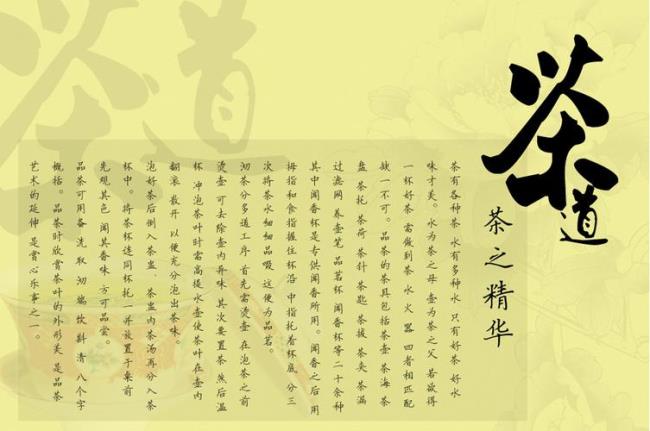 茶道
茶之精华
茶有各种茶 水有多种水 只有好茶 好水
味才美。水为茶之母 壶为茶之父 若欲得
一杯好茶 需做到茶 水 火 器 四者相匹配
缺一不可。品茶的茶具包括茶壶 茶海 茶
盘 茶托 茶荷 茶针 茶匙 茶拨 茶夹 茶漏
过滤网 养壶笔 品茗杯 闻香杯等二十余种
其中闻香杯是专供闻香所用。闻香之后 用
拇指和食指握住杯沿 中指托着杯底 分三
次将茶水细细品啜 这便为品茗。
沏茶分多道工序 首先需烫壶 在泡茶之前
烫壶 可去除壶内异味 其次要置茶 然后温
杯 冲泡茶叶时需高提水壶使茶叶在壶内
翻滚 散开 以便充分泡出茶味。
泡好茶后倒入茶盅、茶盅内茶汤再分入茶
杯中。将茶杯连同杯托一并放置于桌前
先观其色 闻其香味 方可品尝。
品茶可用备 洗 取 沏 端 饮 斟 清 八个字
概括。品茶时欣赏茶叶的外形美 是品茶
艺术的延伸 是赏心乐事之一。
茶道